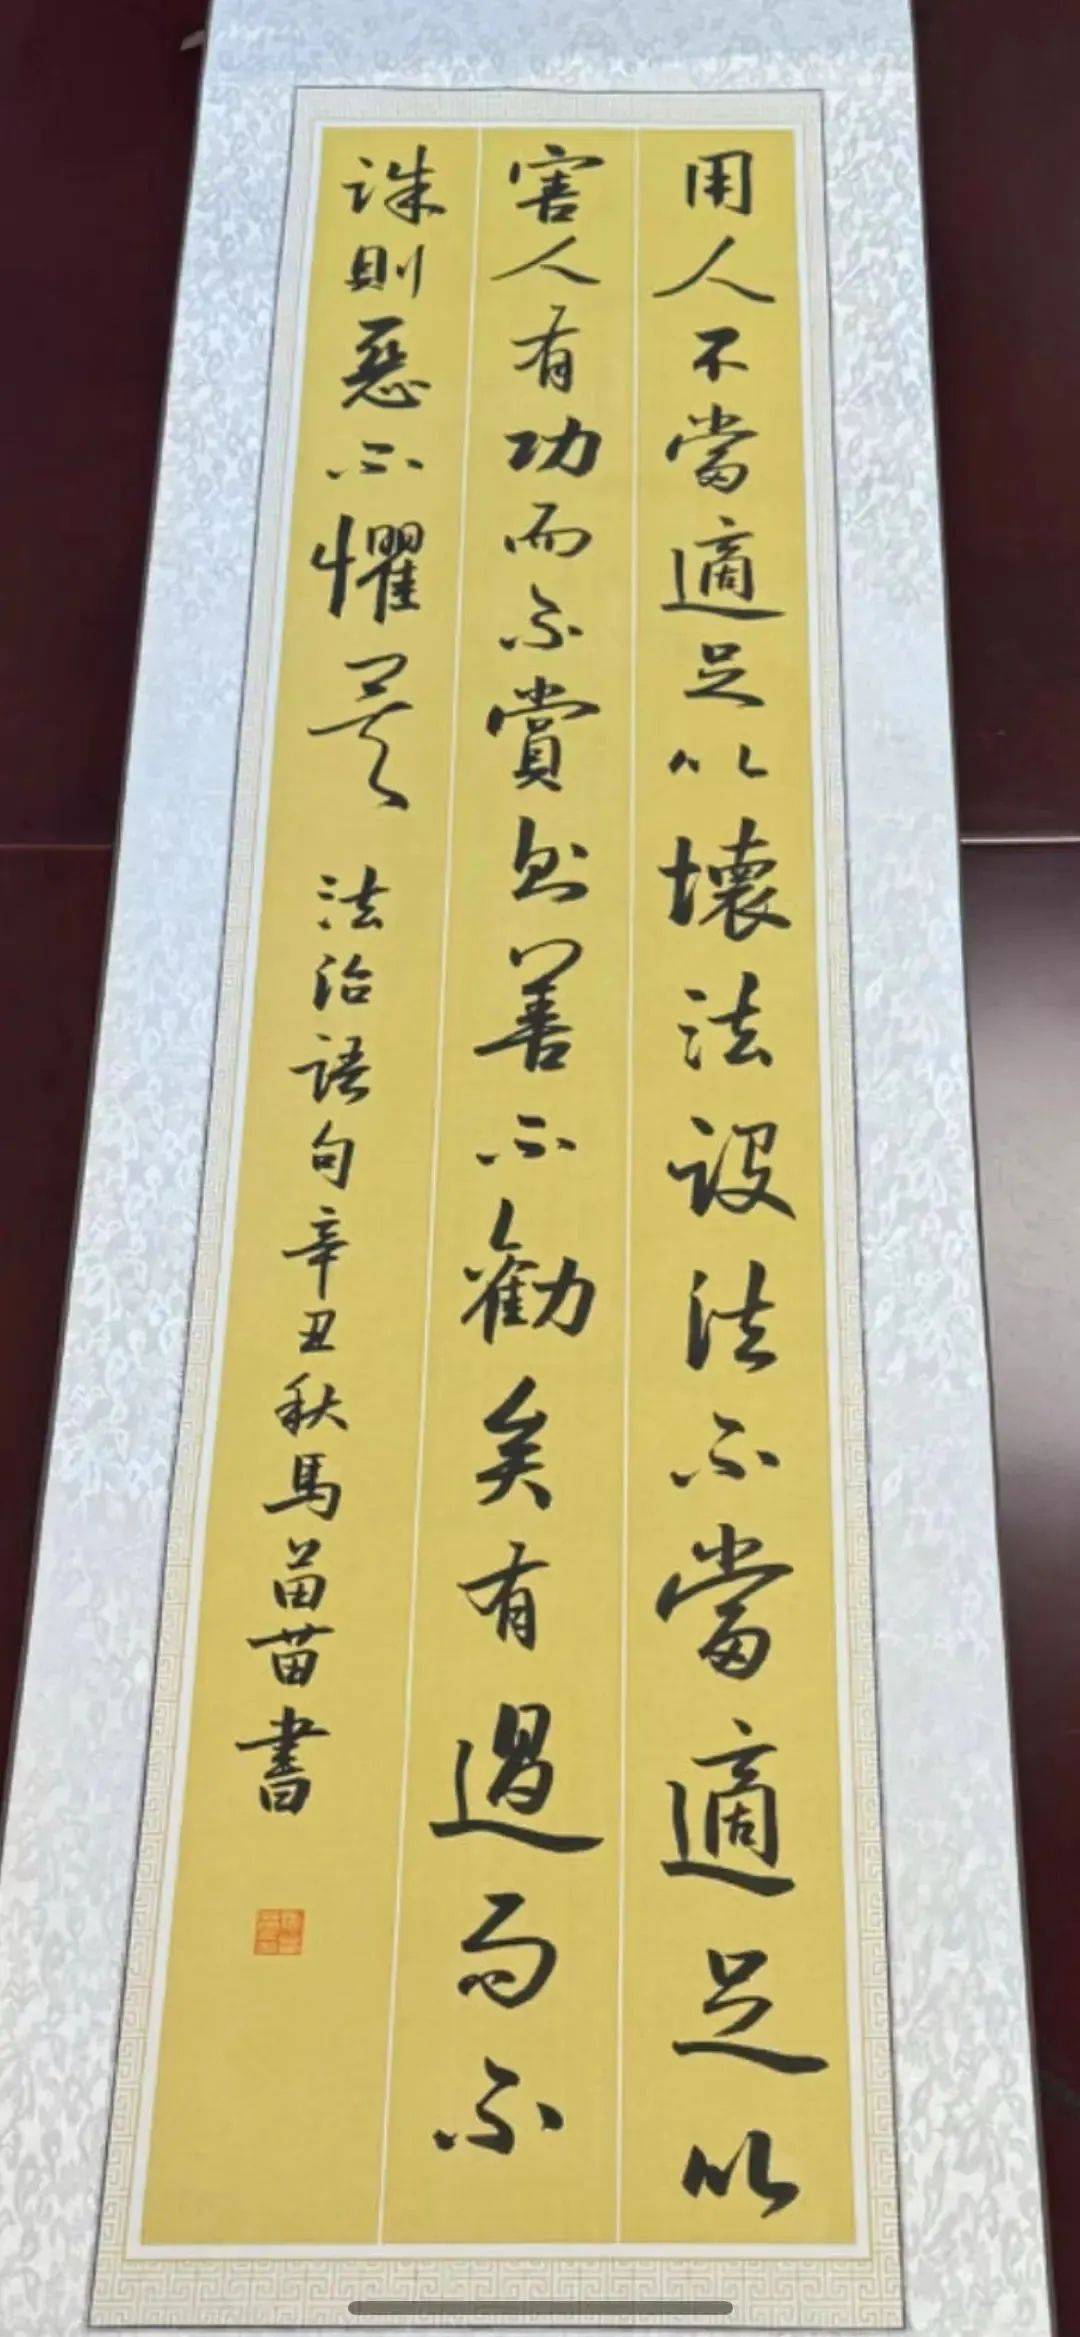 用人不當適足以壞法設法不當適足以
害人有功而不賞則善不勸矣有過而不
誅則惡不懼矣 法治語句辛丑秋馬苗苗書